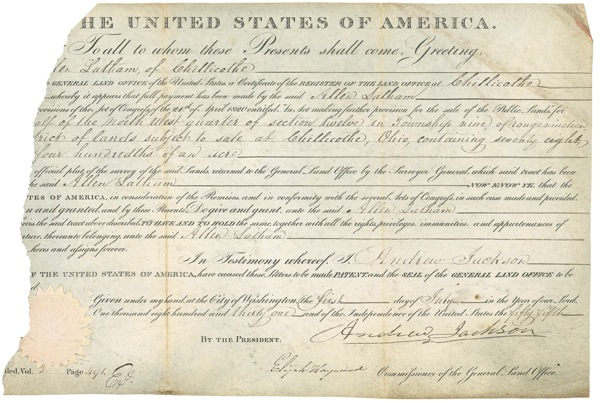 HE UNITED STATES OF AMERICA.
To all to whom these Presents shall come, Greeting:
len Latham, of Chillicothe
GENERAL LAND OFFICE of the United States a Certificate of the REGISTER OF THE LAND OFFICE at Chillicothe
whereby it appears that full payment has been made by the said Allen Latham
ovisions of the Act of Congress of the 24th of April 1820 entitled "An Act making further provision for the sale of the Public Lands for
alf of the North West quarter of section twelve in Township nine, of range nineteen
trict of lands subject to sale at Chillicothe, Ohio, containing seventy eight
four hundredths of an acre
official plat of the survey of the said Lands, returned to the General Land Office by the Surveyor General, which said tract has been
he said Allen Latham NOW KNOW YE, that the
TES OF AMERICA, in consideration of the Premises, and in conformity with the several Acts of Congress, in such case made and provided
n and granted, and by these Presents, Do give and grant, unto the said Allen Latham
eirs, the said tract above described, TO HAVE AND TO HOLD the same, together with all the rights, privileges, immunities, and appurtenances of
ature, thereunto belonging, unto the said Allen Latham
heirs and assigns forever.
In Testimony whereof, I, Andrew Jackson
OF THE UNITED STATES OF AMERICA, have caused these Letters to be made PATENT, and the SEAL of the GENERAL LAND OFFICE to be
d.
Given under my hand, at the City of Washington, the first day of July in the Year of our Lord
One thousand eight hundred and thirty one and of the Independence of the United States the fifty fifth
BY THE PRESIDENT, Andrew Jackson
Elijah Hayward Commissioner of the General Land Office.
ded, Vol. Page 491